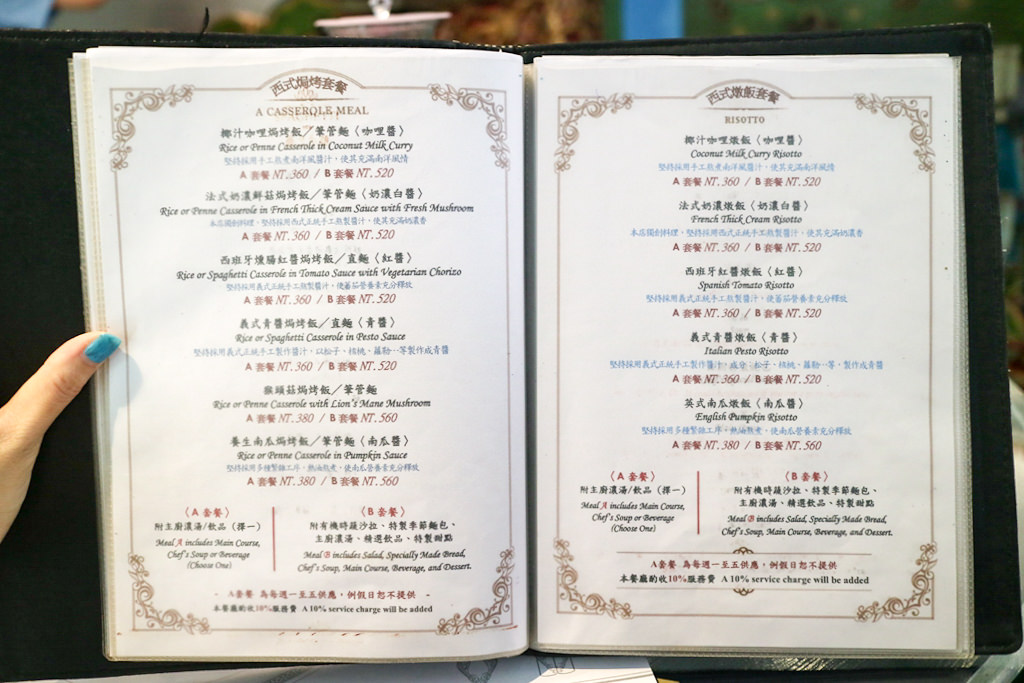 西式焗烤套餐
A CASSEROLE MEAL
椰汁咖哩焗烤飯／筆管麵〈咖哩醬〉
Rice or Penne Casserole in Coconut Milk Curry
堅持採用手工熬煮南洋風醬汁，使其充滿南洋風情
A 套餐 NT.360 / B 套餐 NT.520
法式奶濃鮮菇焗烤飯／筆管麵〈奶濃白醬〉
Rice or Penne Casserole in French Thick Cream Sauce with Fresh Mushroom
本店獨創料理，堅持採用西式正統手工熬製醬汁，使其充滿奶濃香
A 套餐 NT.360 / B 套餐 NT.520
西班牙燻腸紅醬焗烤飯／直麵〈紅醬〉
Rice or Spaghetti Casserole in Tomato Sauce with Vegetarian Chorizo
堅持採用義式正統手工熬製醬汁，使蕃茄營養素充分釋放
A 套餐 NT.360 / B 套餐 NT.520
義式青醬焗烤飯／直麵〈青醬〉
Rice or Spaghetti Casserole in Pesto Sauce
堅持採用義式正統手工製作醬汁，以松子、核桃、蘿勒…等製作成青醬
A 套餐 NT.360 / B 套餐 NT.520
猴頭菇焗烤飯／筆管麵
Rice or Penne Casserole with Lion's Mane Mushroom
A 套餐 NT.380 / B 套餐 NT.560
養生南瓜焗烤飯／筆管麵〈南瓜醬〉
Rice or Penne Casserole in Pumpkin Sauce
堅持採用多種繁雜工序，熱油熬煮，使南瓜營養素充分釋放
A 套餐 NT.380 / B 套餐 NT.560
〈A 套餐〉
附主廚濃湯/飲品（擇一）
Meal A includes Main Course,
Chef's Soup or Beverage
(Choose One)
〈B 套餐〉
附有機時蔬沙拉、特製季節麵包、
主廚濃湯、精選飲品、特製甜點
Meal B includes Salad, Specially Made Bread,
Chef's Soup, Main Course, Beverage, and Dessert.
- A套餐 為每週一至五供應，例假日恕不提供 -
本餐廳酌收10%服務費 A 10% service charge will be added
西式燉飯套餐
RISOTTO
椰汁咖哩燉飯〈咖哩醬〉
Coconut Milk Curry Risotto
堅持採用手工熬煮南洋風醬汁，使其充滿南洋風情
A 套餐 NT.360 / B 套餐 NT.520
法式奶濃燉飯〈奶濃白醬〉
French Thick Cream Risotto
本店獨創料理，堅持採用西式正統手工熬製醬汁，使其充滿奶濃香
A 套餐 NT.360 / B 套餐 NT.520
西班牙紅醬燉飯〈紅醬〉
Spanish Tomato Risotto
堅持採用義式正統手工熬製醬汁，使蕃茄營養素充分釋放
A 套餐 NT.360 / B 套餐 NT.520
義式青醬燉飯〈青醬〉
Italian Pesto Risotto
堅持採用義式正統手工製作醬汁，成分：松子、核桃、蘿勒…等，製作成青醬
A 套餐 NT.360 / B 套餐 NT.520
英式南瓜燉飯〈南瓜醬〉
English Pumpkin Risotto
堅持採用多種繁雜工序，熱油熬煮，使南瓜營養素充分釋放
A 套餐 NT.380 / B 套餐 NT.560
〈A 套餐〉
附主廚濃湯/飲品（擇一）
Meal A includes Main Course,
Chef's Soup or Beverage
(Choose One)
〈B 套餐〉
附有機時蔬沙拉、特製季節麵包、
主廚濃湯、精選飲品、特製甜點
Meal B includes Salad, Specially Made Bread,
Chef's Soup, Main Course, Beverage, and Dessert.
A套餐 為每週一至五供應，例假日恕不提供
本餐廳酌收10%服務費 A 10% service charge will be added